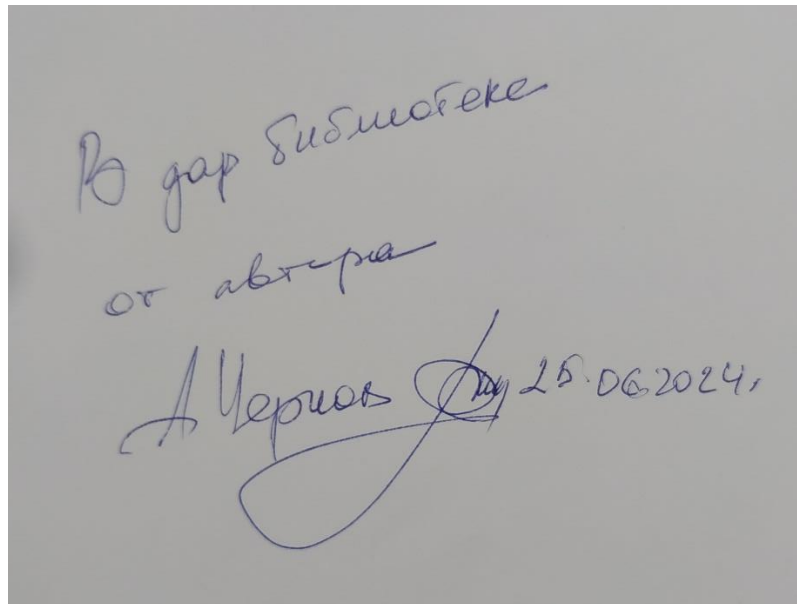 В дар библиотеке
от автора
А Чернов 25.06 2024.